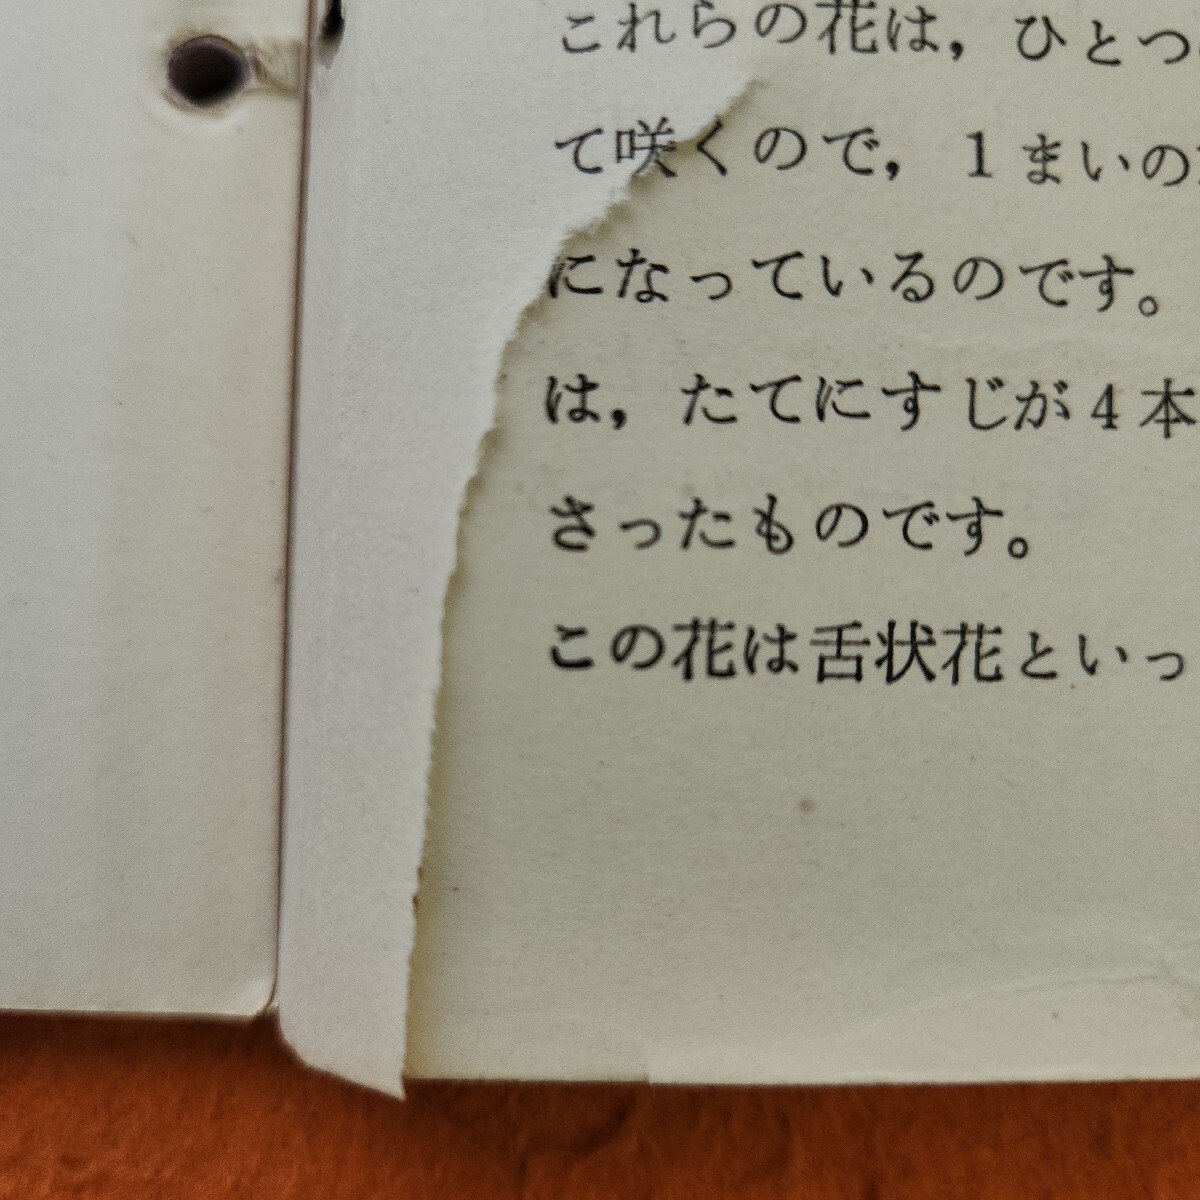 これらの花は，ひとつ
て咲くので，1まいの
になっているのです。
は，たてにすじが4本
さったものです。
この花は舌状花といっ